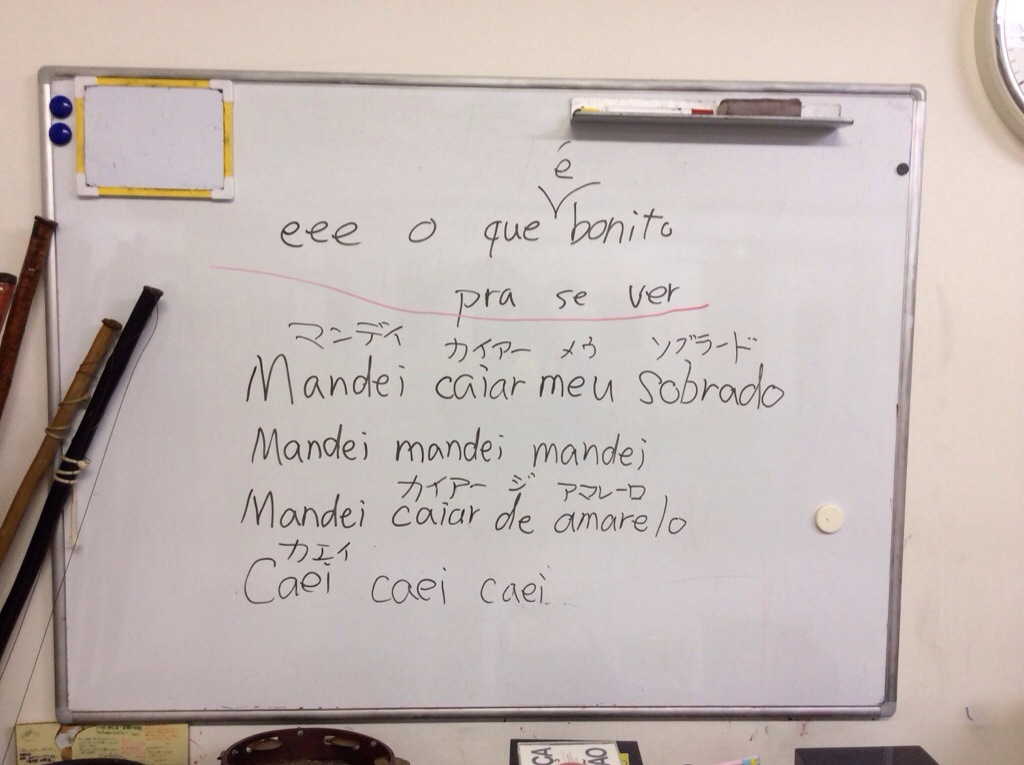 é
eee o que bonito
pra se ver
マンデイ カイアー メウ ソブラード
Mandei caiar meu sobrado
Mandei mandei mandei
カイアー ジ アマレーロ
Mandei caiar de amarelo
カエイ
Caei caei caei
ÇA
ÃO